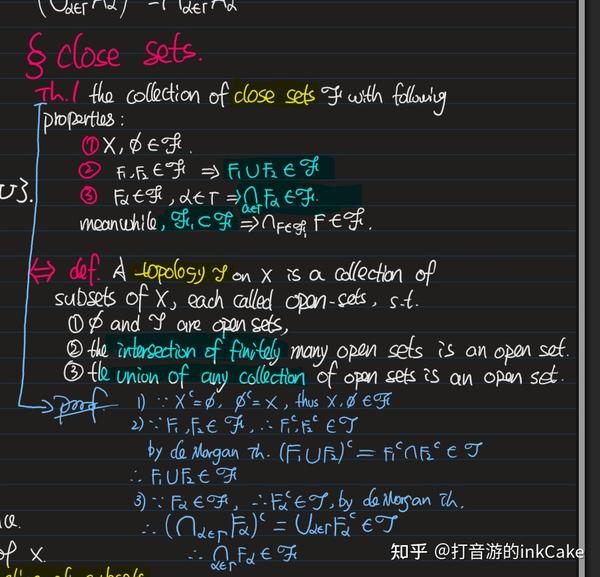 (∪α∈Γ Aα)ᶜ = ∩α∈Γ Aα
§ close sets.
Th.1 the collection of close sets ℱ with following
properties:
① X, ∅ ∈ ℱ.
② F₁,F₂ ∈ ℱ ⇒ F₁∪F₂ ∈ ℱ
③ Fα∈ℱ, α∈Γ ⇒ ∩α∈Γ Fα∈ℱ.
meanwhile, ℱ₁⊂ℱ ⇒ ∩F∈ℱ₁ F∈ℱ.
⇔ def. A topology 𝒯 on X is a collection of
subsets of X, each called open-sets, s.t.
① ∅ and 𝒯 are open sets,
② the intersection of finitely many open sets is an open set.
③ the union of any collection of open sets is an open set.
proof. 1) ∵ Xᶜ=∅, ∅ᶜ=X, thus X,∅∈ℱ
2) ∵ F₁,F₂∈ℱ, ∴ F₁ᶜ,F₂ᶜ∈𝒯
by de Morgan Th. (F₁∪F₂)ᶜ = F₁ᶜ∩F₂ᶜ ∈𝒯
∴ F₁∪F₂∈ℱ
3) ∵ Fα∈ℱ, ∴ Fαᶜ∈𝒯, by de Morgan Th.
∴ (∩α∈Γ Fα)ᶜ = ∪α∈Γ Fαᶜ∈𝒯
of X.
∴ ∩α∈Γ Fα∈ℱ
知乎 @打音游的inkCake